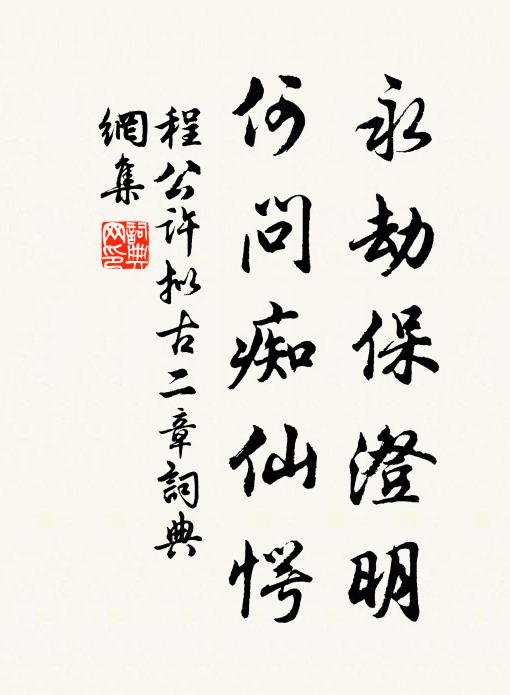 永劫保澄明
何問痴仙愕
程公许拟古二章詞典
網集
詞典網印